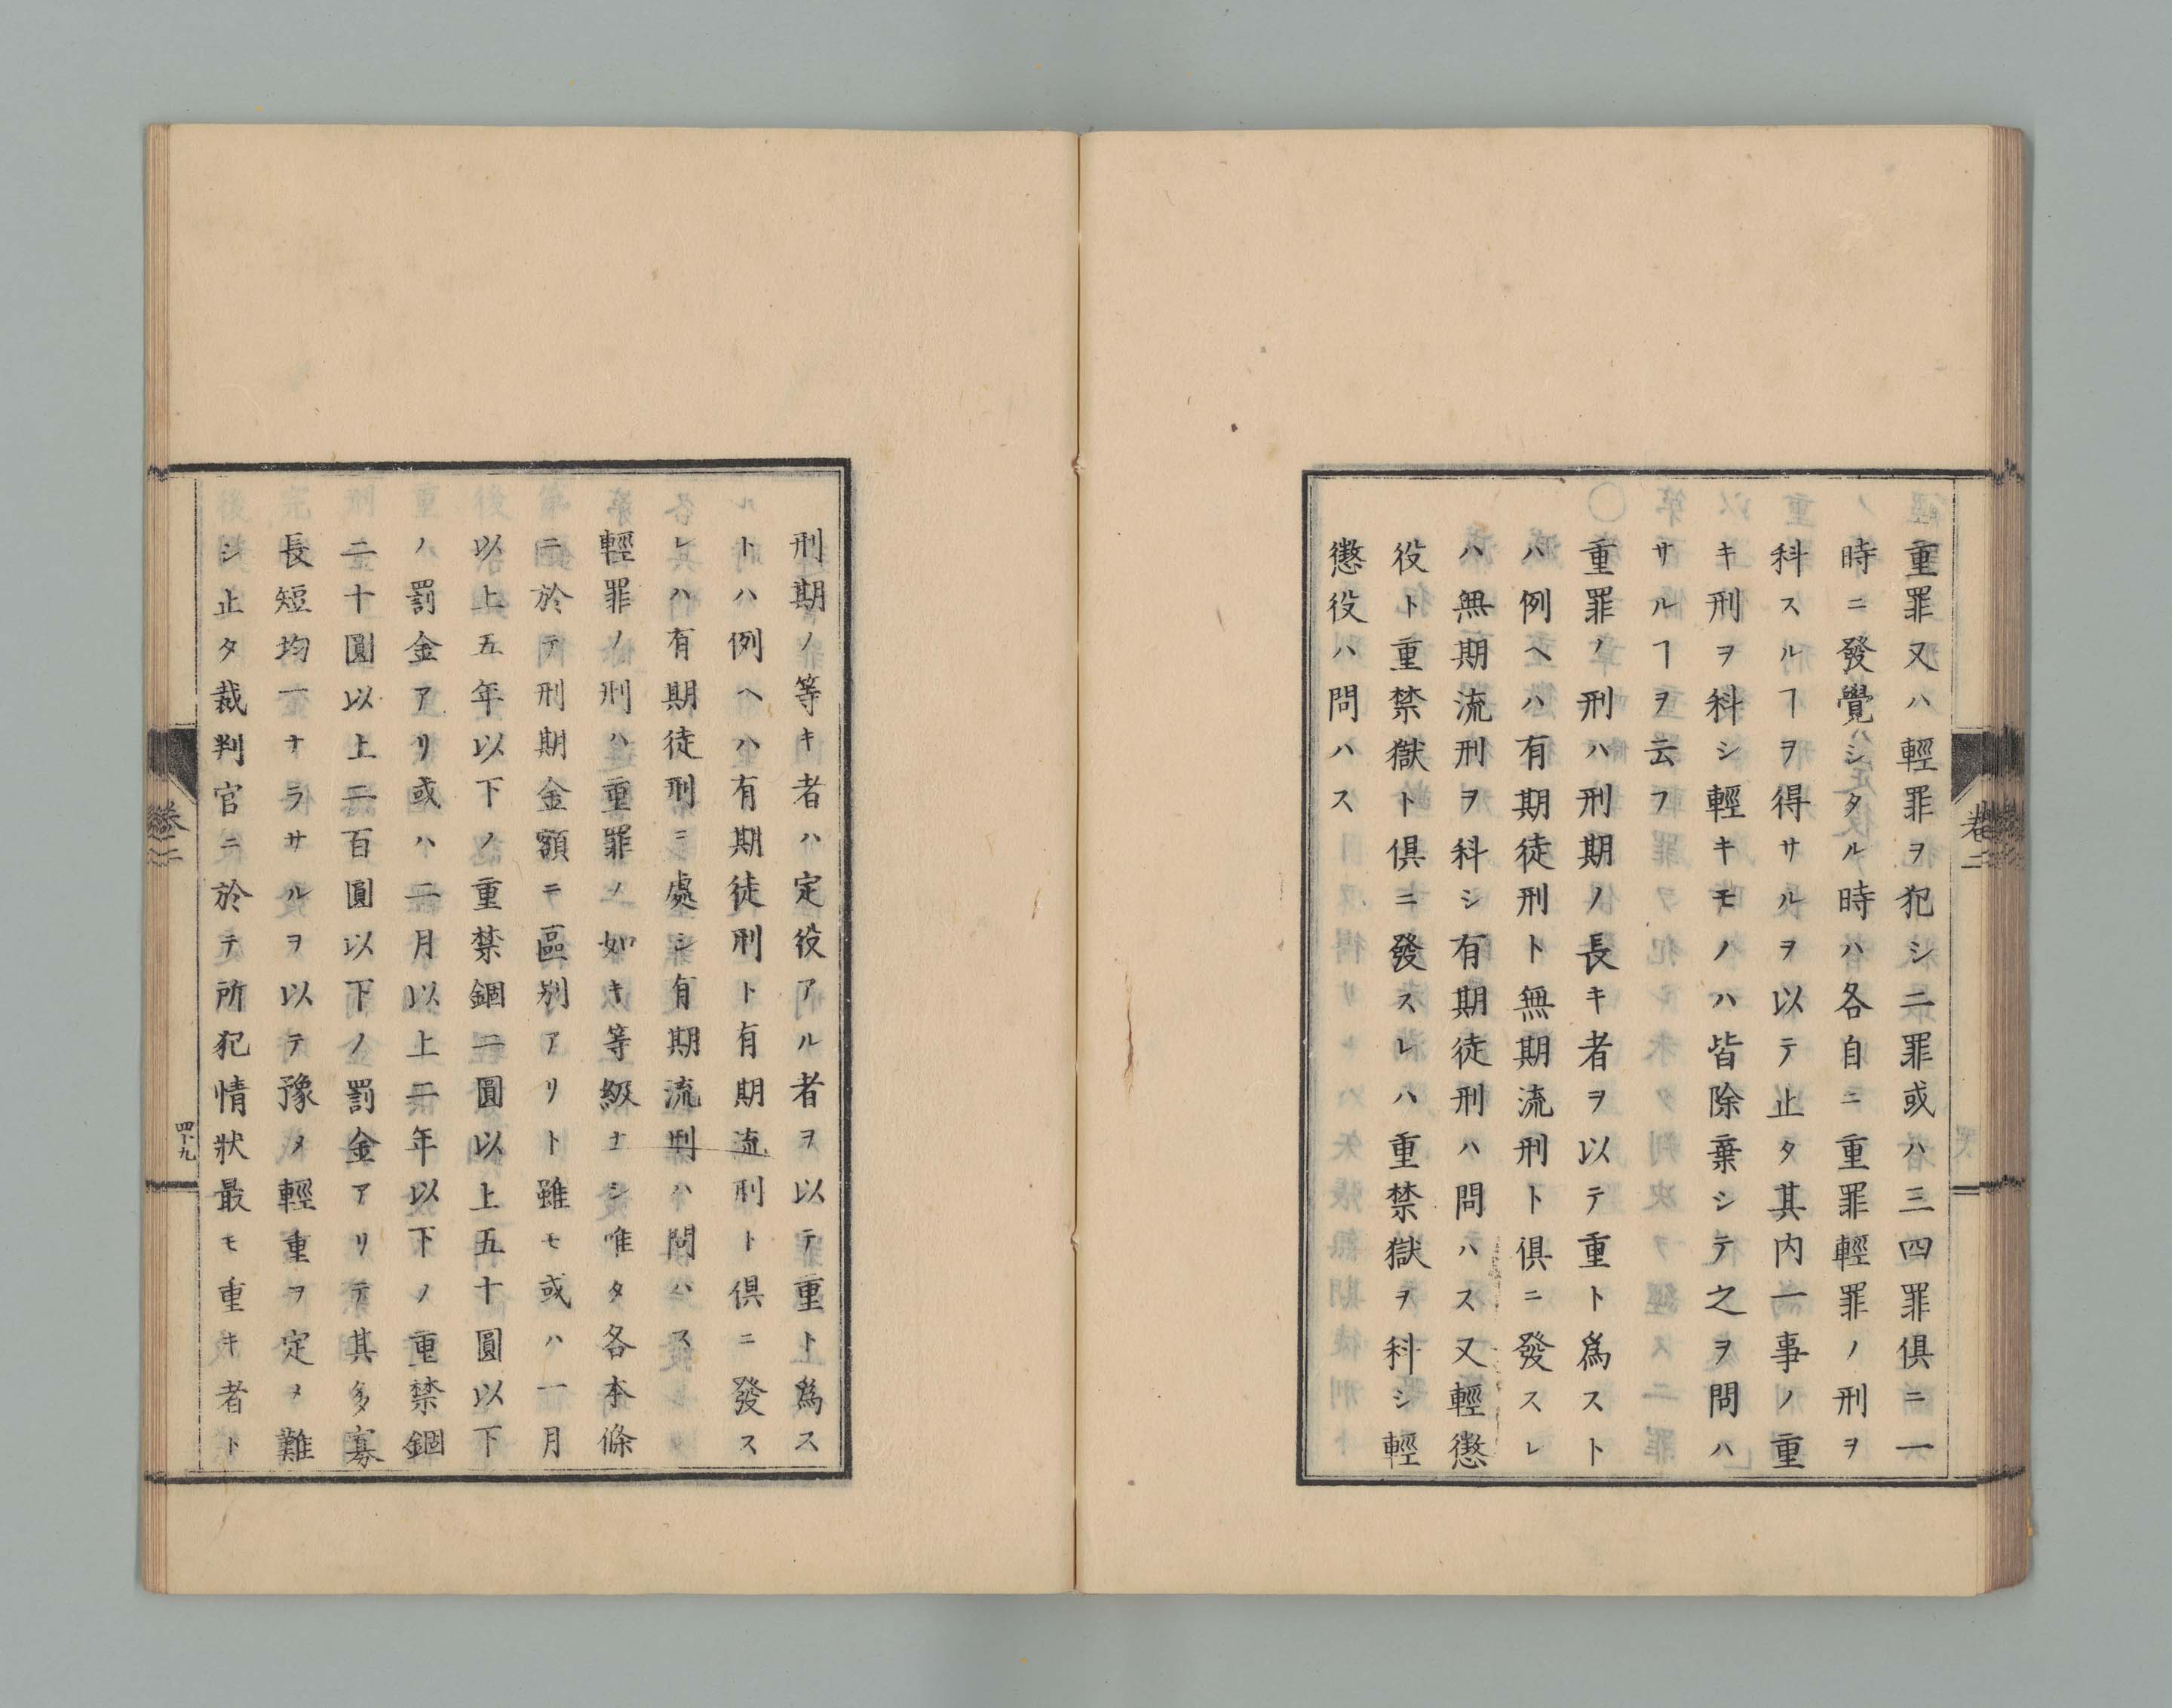 重罪又ハ輕罪ヲ犯シ二罪或ハ三四罪俱ニ一
時ニ發覺ハシタル時ハ各自ニ重罪輕罪ノ刑ヲ
科スルヿヲ得サルヲ以テ止タ其内一事ノ重
キ刑ヲ科シ輕キモノハ皆除棄シテ之ヲ問ハ
サルヿヲ云フ
重罪ノ刑ハ刑期ノ長キ者ヲ以テ重ト爲スト
ハ例ヘハ有期徒刑ト無期流刑ト俱ニ發スレ
ハ無期流刑ヲ科シ有期徒刑ハ問ハス又輕懲
役ト重禁獄ト俱ニ發スレハ重禁獄ヲ科シ輕
懲役ハ問ハス
卷二
刑期ノ等キ者ハ定役アル者ヲ以テ重ト爲ス
トハ例ヘハ有期徒刑ト有期流刑ト俱ニ發ス
レハ有期徒刑ニ處シ有期流刑ハ問ハス
輕罪ノ刑ハ重罪ノ如キ等級ナシ唯タ各本條
ニ於テ刑期金額ニテ區別アリト雖モ或ハ一月
以上五年以下ノ重禁錮二圓以上五十圓以下
ノ罰金アリ或ハ二月以上二年以下ノ重禁錮
二十圓以上二百圓以下ノ罰金アリテ其多寡
長短均一ナラサルヲ以テ豫メ輕重ヲ定メ難
シ止タ裁判官ニ於テ所犯情狀最モ重キ者ト
卷二
四十九